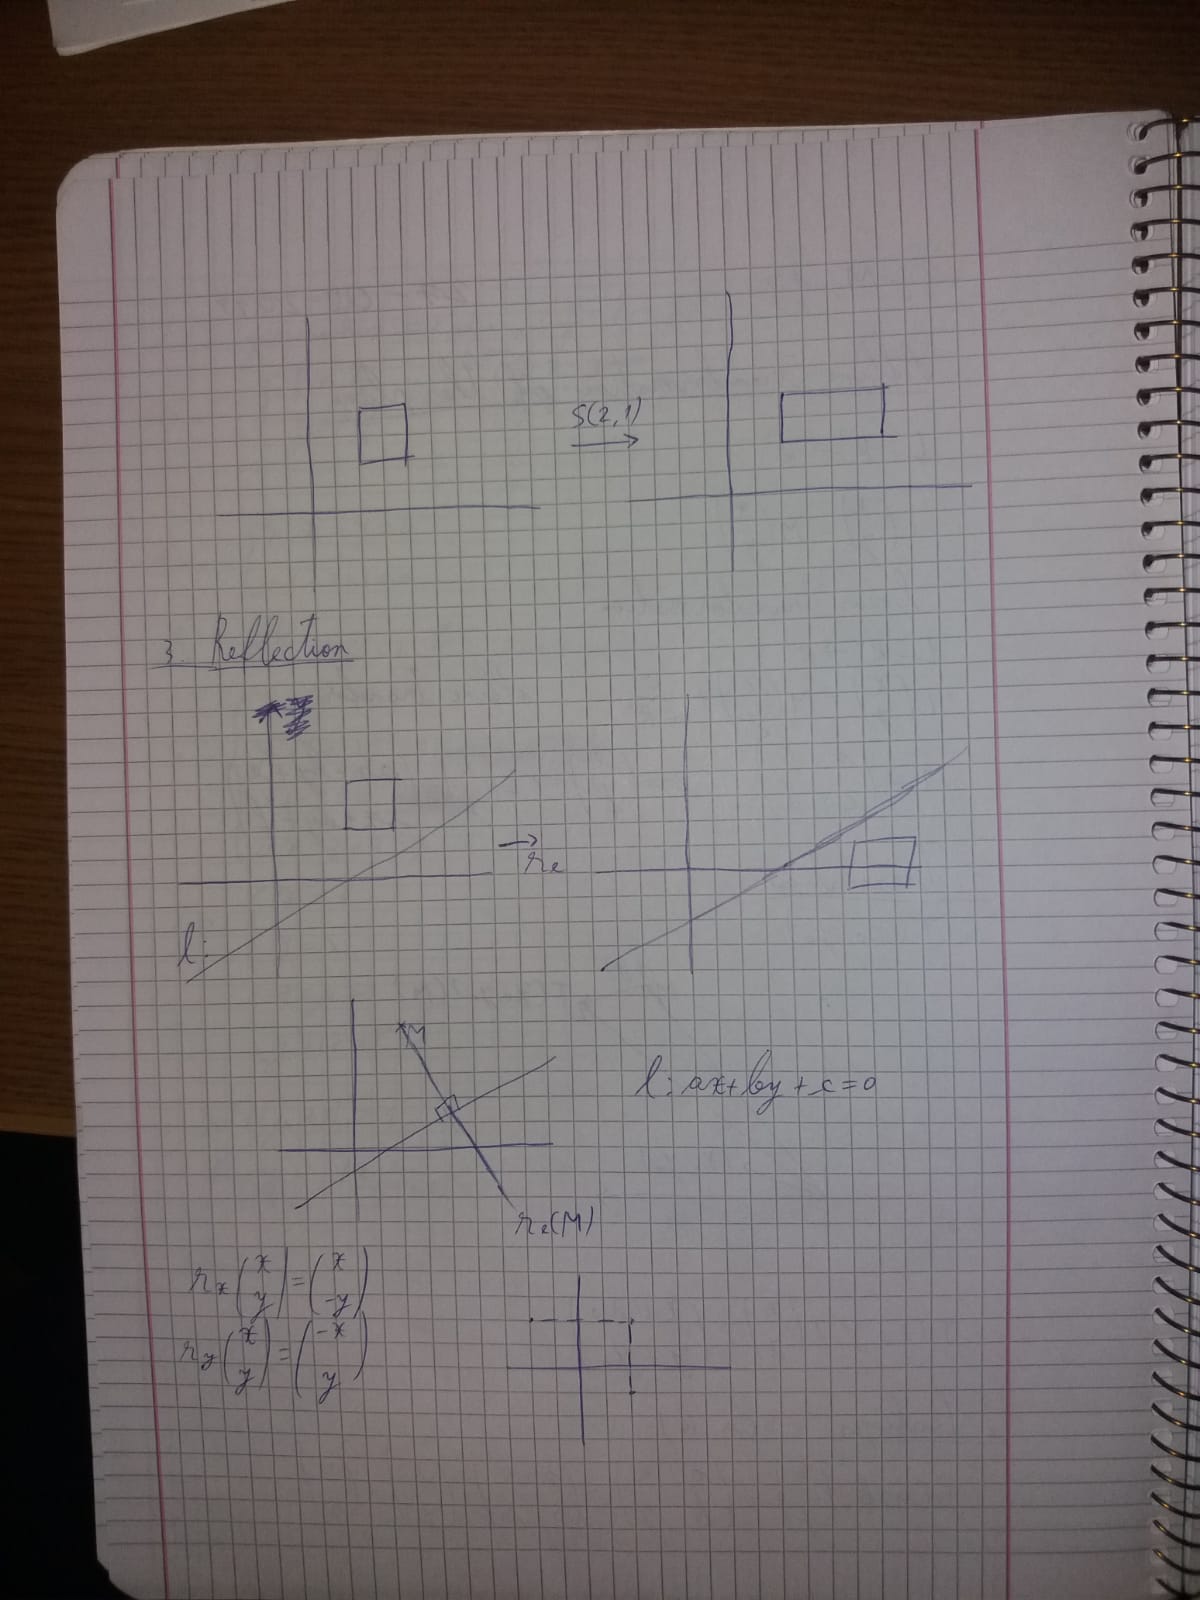 S(2,1)
3. Reflection
r_ℓ
ℓ:
M
ℓ: ax+by+c=0
r_ℓ(M)
r_x (x y) = (x -y)
r_y (x y) = (-x y)